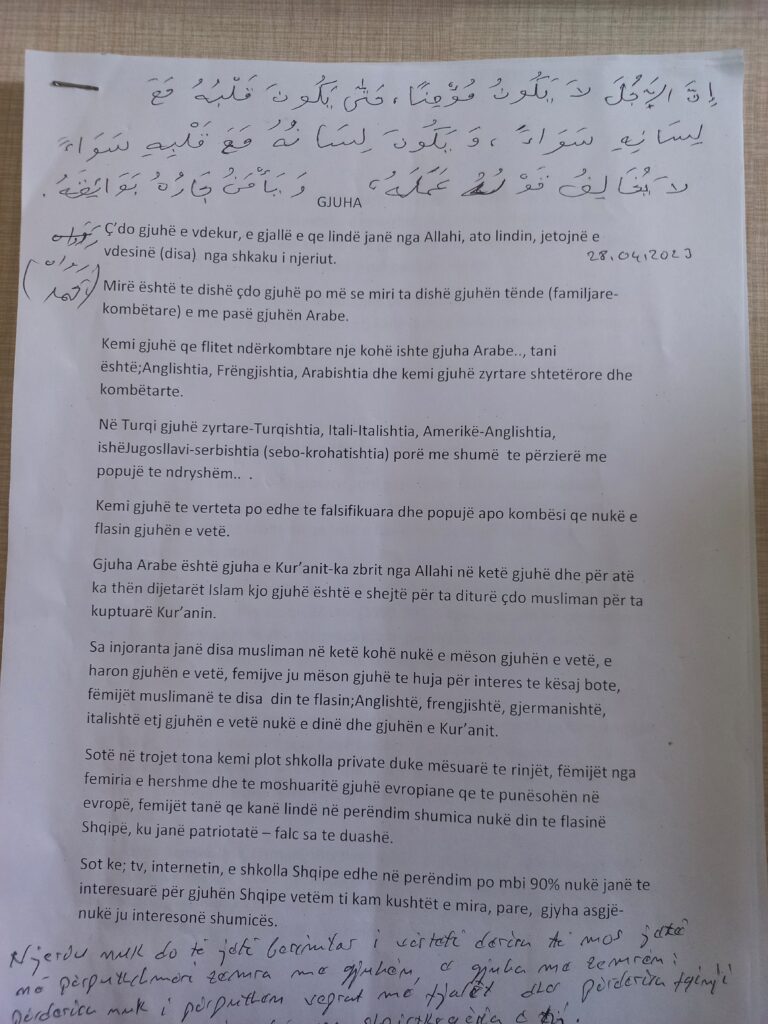 إِنَّ الرَّجُلَ لاَ يَكُونُ مُؤْمِنًا، حَتَّى يَكُونَ قَلْبُهُ مَعَ
لِسَانِهِ سَوَاءً، وَ يَكُونَ لِسَانُهُ مَعَ قَلْبِهِ سَوَاءً
لاَ يُخَالِفُ قَوْلُهُ عَمَلَهُ، وَ يَأْمَنُ جَارُهُ بَوَائِقَهُ.
GJUHA
رواه
Ç'do gjuhë e vdekur, e gjallë e qe lindë janë nga Allahi, ato lindin, jetojnë e
vdesinë (disa) nga shkaku i njeriut.
28.04.2023
(رواه
Mirë është te dishë çdo gjuhë po më se miri ta dishë gjuhën tënde (familjare-
kombëtare) e me pasë gjuhën Arabe.
Kemi gjuhë qe flitet ndërkombtare nje kohë ishte gjuha Arabe.., tani
është;Anglishtia, Frëngjishtia, Arabishtia dhe kemi gjuhë zyrtare shtetërore dhe
kombëtarte.
Në Turqi gjuhë zyrtare-Turqishtia, Itali-Italishtia, Amerikë-Anglishtia,
ishëJugosllavi-serbishtia (sebo-krohatishtia) porë me shumë te përzierë me
popujë te ndryshëm.. .
Kemi gjuhë te verteta po edhe te falsifikuara dhe popujë apo kombësi qe nukë e
flasin gjuhën e vetë.
Gjuha Arabe është gjuha e Kur'anit-ka zbrit nga Allahi në ketë gjuhë dhe për atë
ka thën dijetarët Islam kjo gjuhë është e shejtë për ta diturë çdo musliman për ta
kuptuarë Kur'anin.
Sa injoranta janë disa musliman në ketë kohë nukë e mëson gjuhën e vetë, e
haron gjuhën e vetë, femijve ju mëson gjuhë te huja për interes te kësaj bote,
fëmijët muslimanë te disa din te flasin;Anglishtë, frengjishtë, gjermanishtë,
italishtë etj gjuhën e vetë nukë e dinë dhe gjuhën e Kur'anit.
Sotë në trojet tona kemi plot shkolla private duke mësuarë te rinjët, fëmijët nga
femiria e hershme dhe te moshuaritë gjuhë evropiane qe te punësohën në
evropë, femijët tanë qe kanë lindë në perëndim shumica nukë din te flasinë
Shqipë, ku janë patriotatë – falc sa te duashë.
Sot ke; tv, internetin, e shkolla Shqipe edhe në perëndim po mbi 90% nukë janë te
interesuarë për gjuhën Shqipe vetëm ti kam kushtët e mira, pare, gjyha asgjë-
nukë ju interesonë shumicës.
Njeriu nuk do të jetë besimtar i vërtetë derisa të mos jetë
në përputhshmëri zemra me gjuhën, e gjuha me zemrën;
përderisa nuk i përputhen veprat me fjalët dhe përderisa fqinji